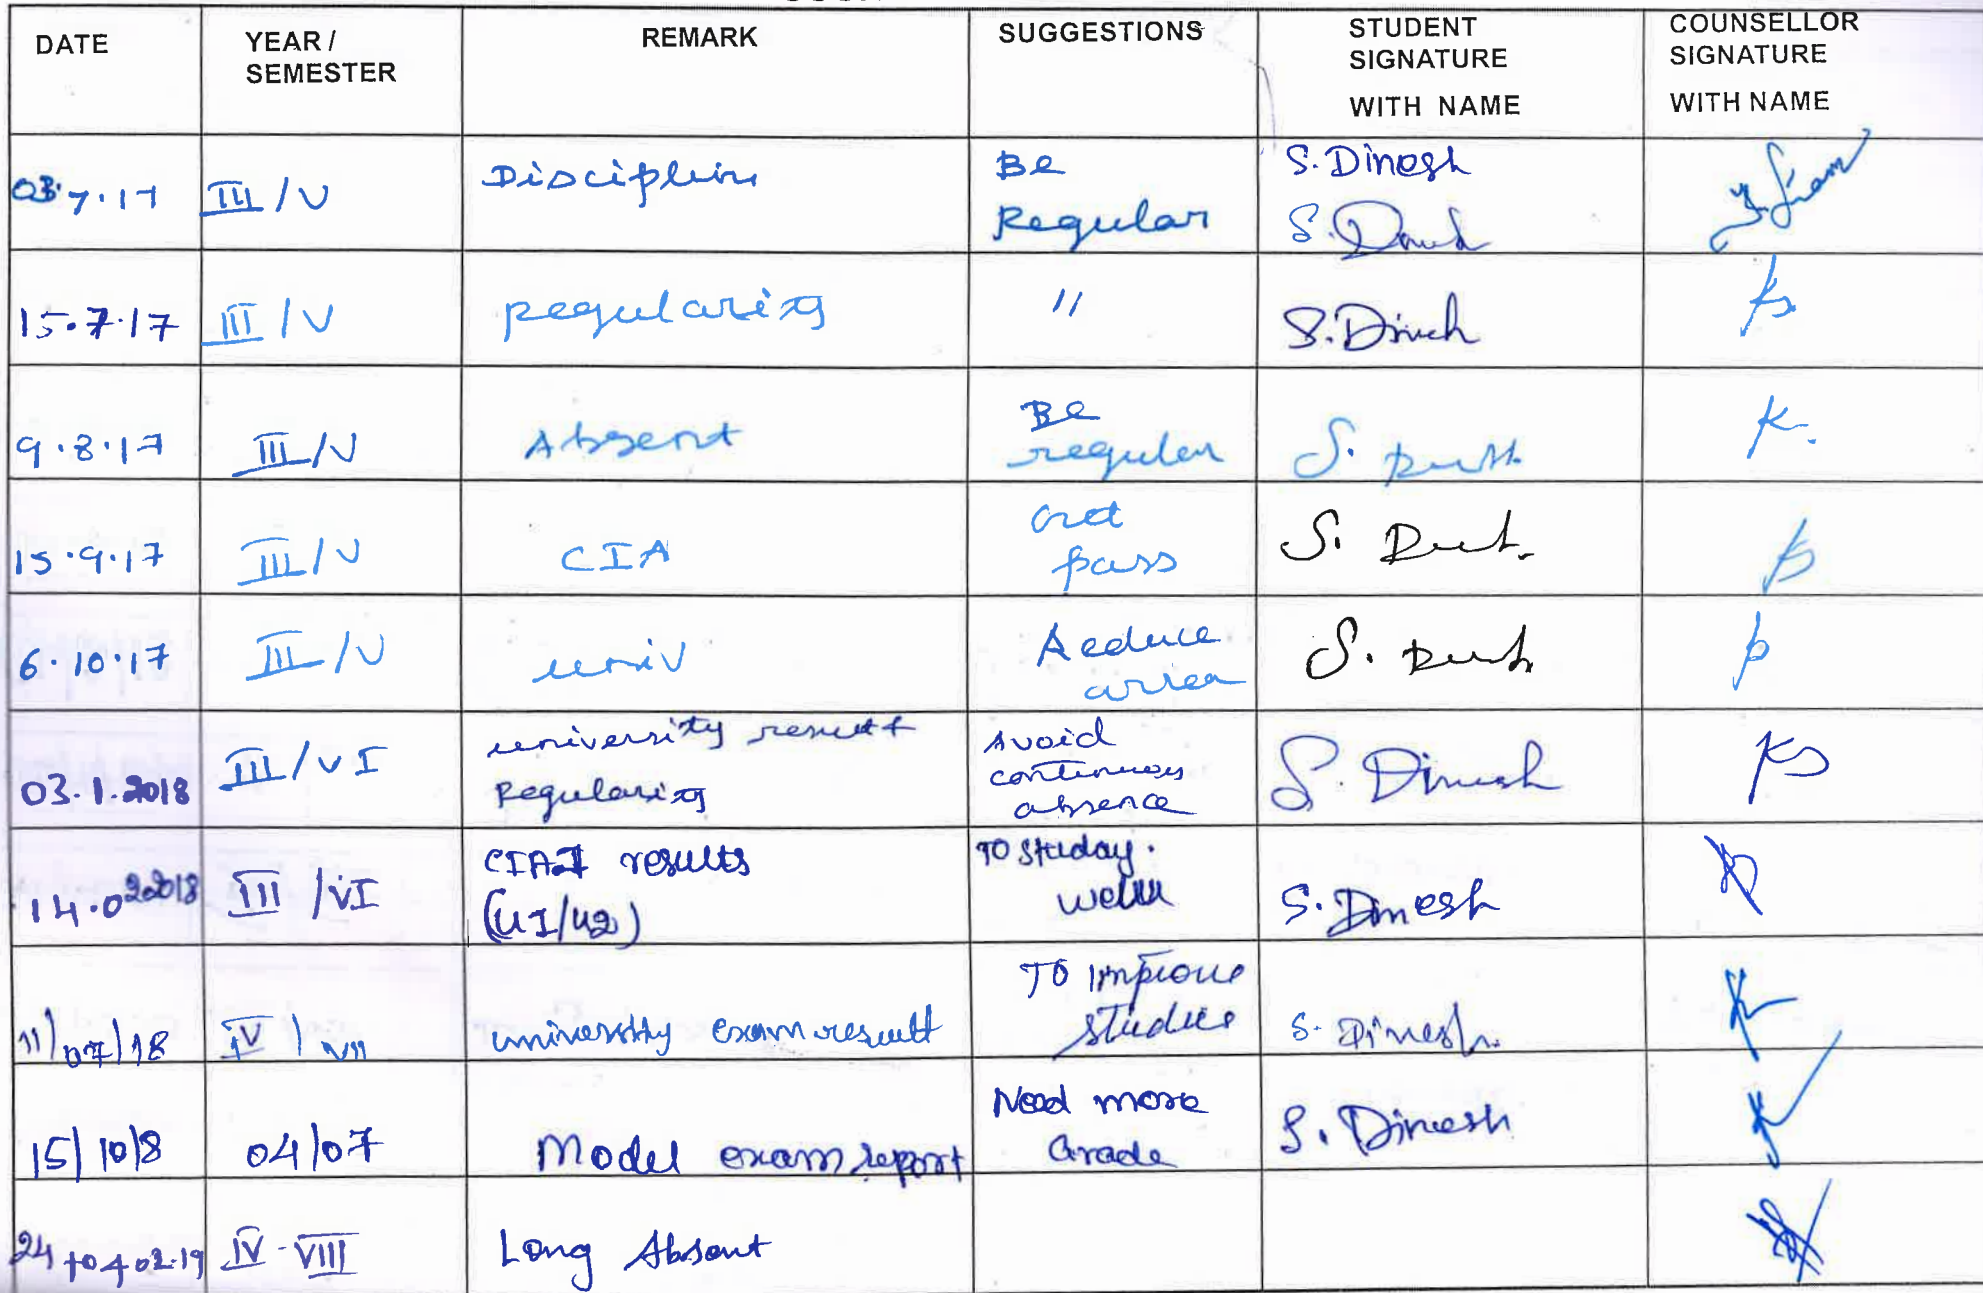 DATE YEAR / SEMESTER REMARK SUGGESTIONS STUDENT SIGNATURE WITH NAME COUNSELLOR SIGNATURE WITH NAME
03.7.17 III/V Disciplin Be Regular S.Dinesh
15.7.17 III/V Regularity " S.Dinesh
9.8.17 III/V Absent Be regular S.
15.9.17 III/V CIA Get pass S.
6.10.17 III/V univ Reduce arrear S.
03.1.2018 III/VI university result Regularity Avoid continuous absence S. Dinesh KS
14.02.2018 III/VI CIA-I results (U1/U2) TO studay. well S. Dinesh
11/07/18 IV/VII university exam result TO improve studies S. Dinesh.
15/10/8 04/07 Model exam report Need more Grade S. Dinesh
24 to 4 02.19 IV-VIII Long Absent